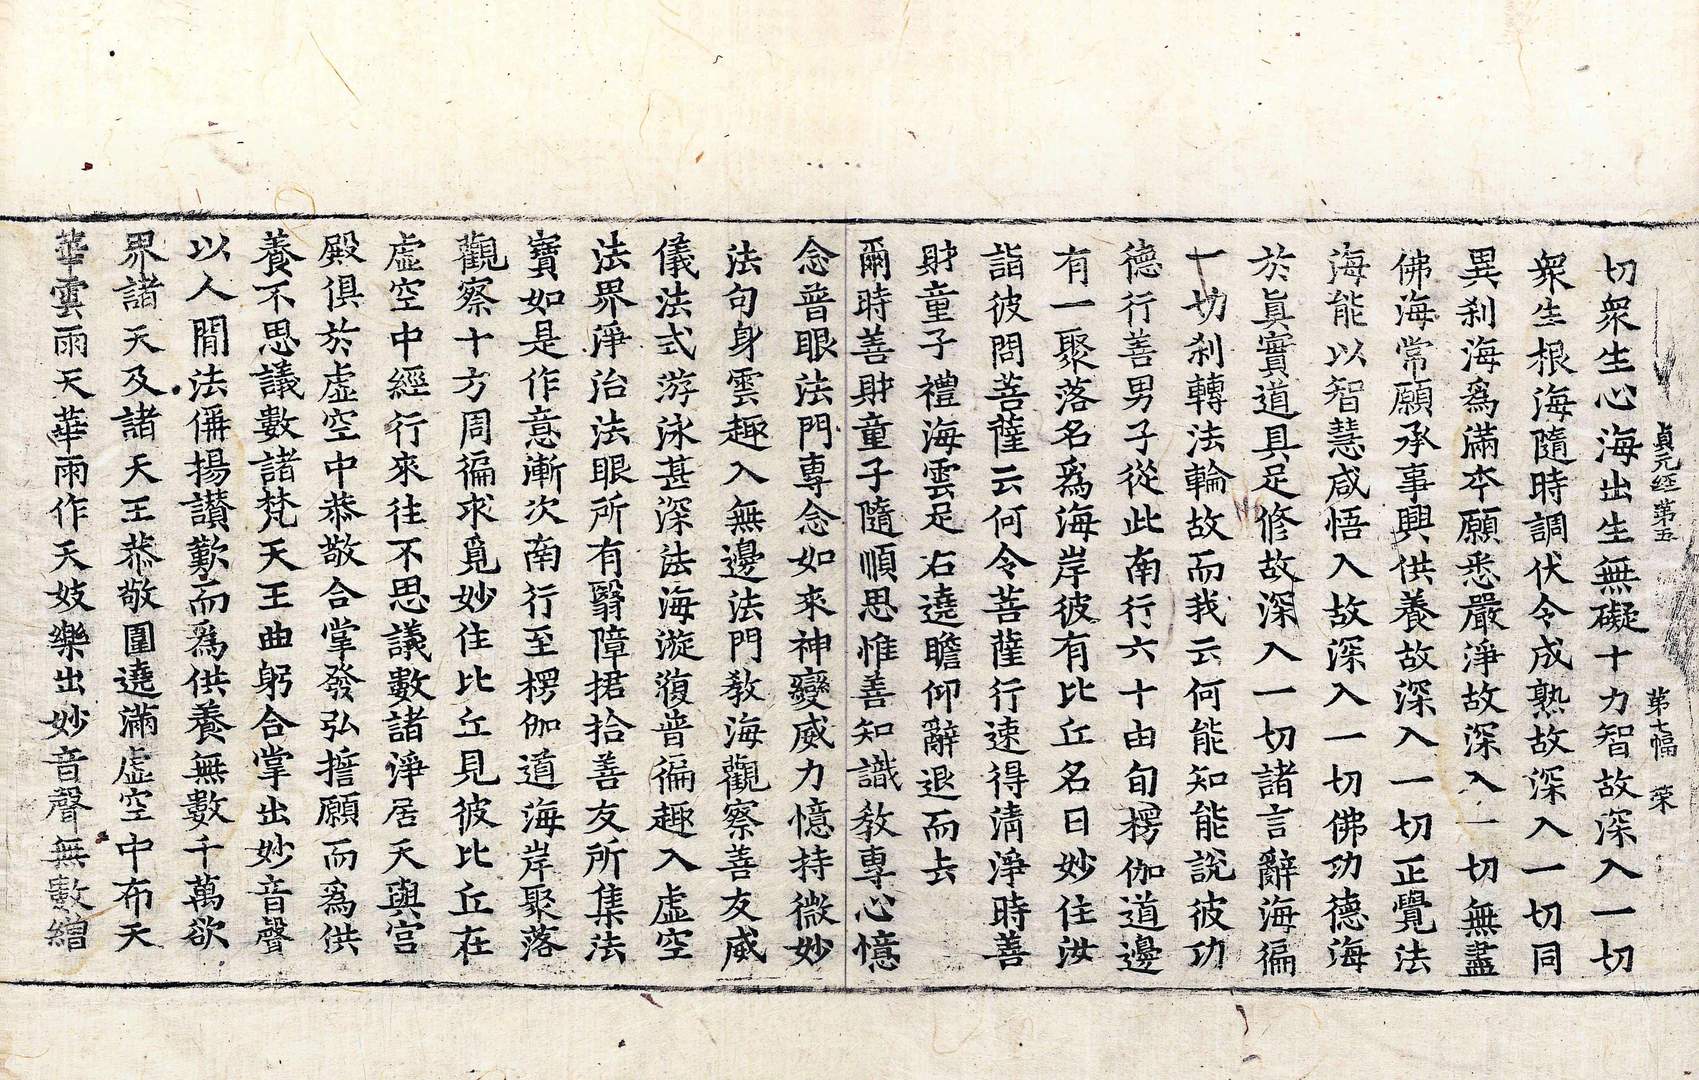 貞元経第五　第七幅　榮
切衆生心海出生無礙十力智故深入一切
衆生根海隨時調伏令成熟故深入一切同
異刹海爲滿本願悉嚴淨故深入一切無盡
佛海常願承事興供養故深入一切正覺法
海能以智慧咸悟入故深入一切佛功德海
於眞實道具足修故深入一切諸言辭海徧
一切刹轉法輪故而我云何能知能說彼功
德行善男子從此南行六十由旬楞伽道邊
有一聚落名爲海岸彼有比丘名曰妙住汝
詣彼問菩薩云何令菩薩行速得清淨時善
財童子禮海雲足右遶瞻仰辭退而去
爾時善財童子隨順思惟善知識教專心憶
念普眼法門專念如來神變威力憶持微妙
法句身雲趣入無邊法門教海觀察善友威
儀法式游泳甚深法海漩澓普徧趣入虛空
法界淨治法眼所有翳障捃拾善友所集法
寶如是作意漸次南行至楞伽道海岸聚落
觀察十方周徧求覓妙住比丘見彼比丘在
虛空中經行來往不思議數諸淨居天與宮
殿俱於虛空中恭敬合掌發弘誓願而爲供
養不思議數諸梵天王曲躬合掌出妙音聲
以人間法偁揚讃歎而爲供養無數千萬欲
界諸天及諸天王恭敬圍遶滿虛空中布天
華雲雨天華雨作天妓樂出妙音聲無數繒